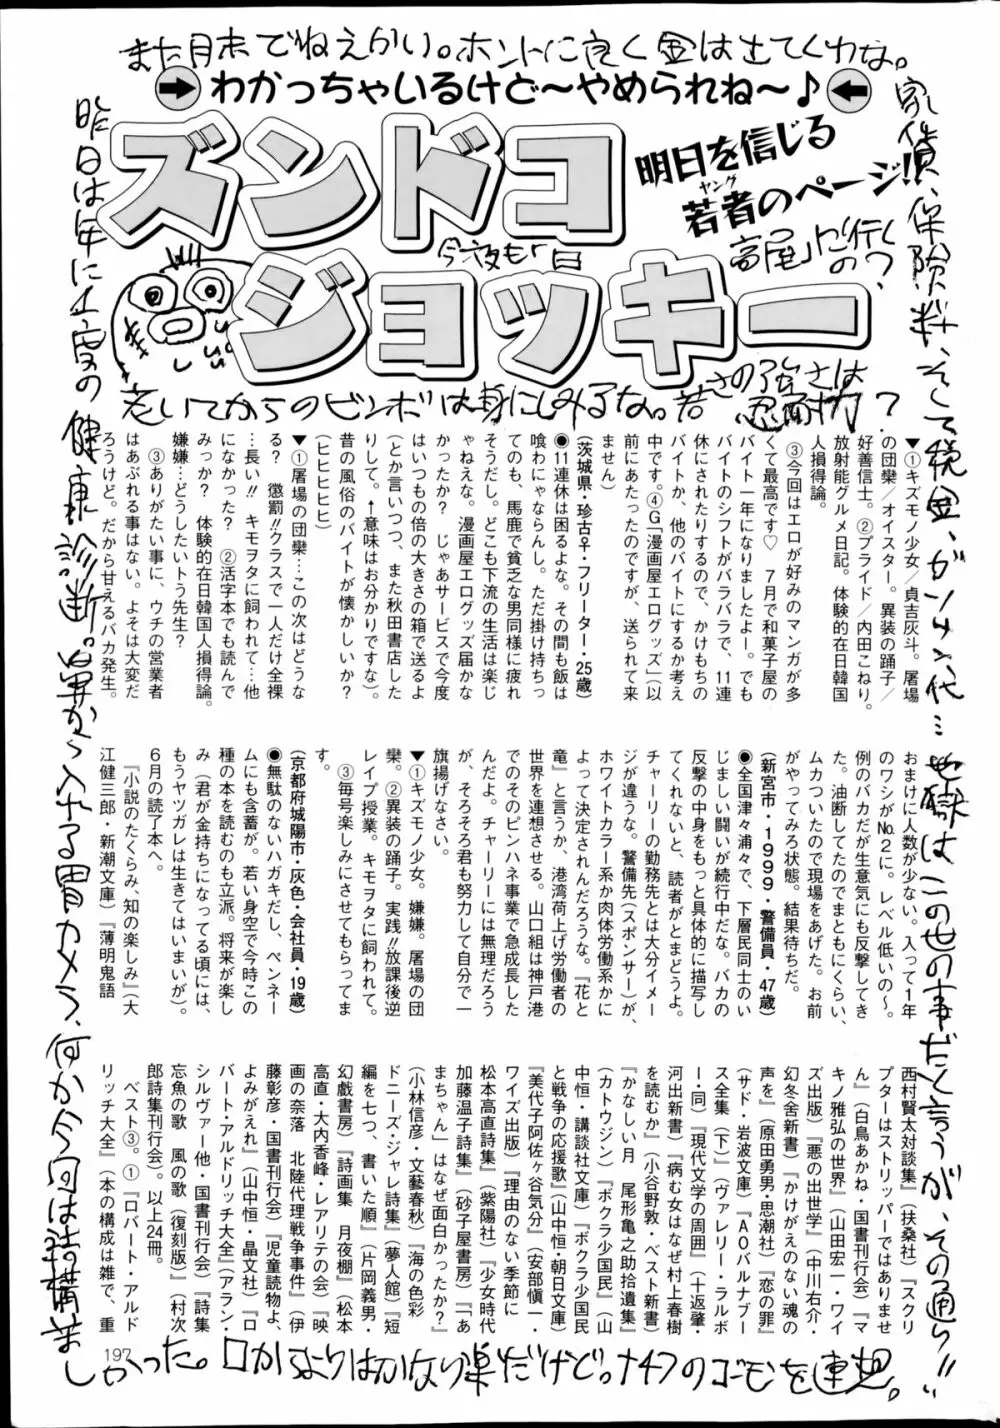 また月末でねえかい。ホントに良く金は出てくわな。
わかっちゃいるけど〜やめられね〜♪
ズンドコ
ジョッキー
明日を信じる
若者のページ!!
ヤング
今夜も1日
老いてからのビンボは身にしみるな。若さの強さは忍耐力?
家賃、保険料、そして税金、ガソリン代…地獄はこの世の事だと言うが、その通り!!
昨日は年に1度の健康診断。鼻から入れる胃カメラ、何か今回は結構ましかった。口からよりはかなり楽だけど。
▼①キズモノ少女/貞吉灰斗。屠場
の団欒/オイスター。異装の踊子/
好善信士。②プライド/内田こねり。
放射能グルメ日記。体験的在日韓国
人損得論。
③今回はエロが好みのマンガが多
くて最高です♡　7月で和菓子屋の
バイト一年になりましたよー。でも
バイトのシフトがバラバラで、11連
休にされたりするので、かけもちの
バイトか、他のバイトにするか考え
中です。④G「漫画屋エログッズ」(以
前にあたったのですが、送られて来
ません)
(茨城県・珍古♀・フリーター・25歳)
●11連休は困るよな。その間も飯は
喰わにゃならんし。ただ掛け持ちっ
てのも、馬鹿で貧乏な男同様に疲れ
そうだし。どこも下流の生活は楽じ
ゃねえな。漫画屋エログッズ届かな
かったか?　じゃあサービスで今度
はいつもの倍の大きさの箱で送るよ
(とか言いつつ、また秋田書店した
りして。↑意味はお分かりですな)。
昔の風俗のバイトが懐かしいか?
(ヒヒヒヒヒ)
▼①屠場の団欒…この次はどうな
る?　懲罰!!クラスで一人だけ全裸
…長い!!　キモヲタに飼われて…他
になかった?　②活字本でも読んで
みっか?　体験的在日韓国人損得論。
嫌嫌…どうしたいトう先生?
③ありがたい事に、ウチの営業者
はあぶれる事はない。よそは大変だ
ろうけど。だから甘えるバカ発生。
おまけに人数が少ない。入って1年
のワシがNo.2に。レベル低いの〜。
例のバカだが生意気にも反撃してき
た。油断してたのでまともにくらい、
ムカついたので現場をあげた。お前
がやってみろ状態。結果待ちだ。
(新宮市・1999・警備員・47歳)
●全国津々浦々で、下層民同士のい
じましい闘いが続行中だな。バカの
反撃の中身をもっと具体的に描写し
てくれないと、読者がとまどうよ。
チャーリーの勤務先とは大分イメー
ジが違うな。警備先(スポンサー)が、
ホワイトカラー系か肉体労働系かに
よって決定されんだろうな。『花と
竜』と言うか、港湾荷上げ労働者の
世界を連想させる。山口組は神戸港
でのそのピンハネ事業で急成長した
んだよ。チャーリーには無理だろう
が、そろそろ君も努力して自分で一
旗揚げなさい。
▼①キズモノ少女。嫌嫌。屠場の団
欒。②異装の踊子。実践!!放課後逆
レイプ授業。キモヲタに飼われて。
③毎号楽しみにさせてもらってま
す。
(京都府城陽市・灰色・会社員・19歳)
●無駄のないハガキだし、ペンネー
ムにも含蓄が。若い身空で今時この
種の本を読むのも立派。将来が楽し
み(君が金持ちになってる頃には、
もうヤツガレは生きてはいまいが)。
6月の読了本へ。
『小説のたくらみ、知の楽しみ』(大
江健三郎・新潮文庫)『薄明鬼語
西村賢太対談集』(扶桑社)『スクリ
プターはストリッパーではありませ
ん』(白鳥あかね・国書刊行会)『マ
キノ雅弘の世界』(山田宏一・ワイ
ズ出版)『悪の出世学』(中川右介・
幻冬舎新書)『かけがえのない魂の
声を』(原田勇男・思潮社)『恋の罪』
(サド・岩波文庫)『AOバルナブー
ス全集(下)』(ヴァレリー・ラルボ
ー・同)『現代文学の周囲』(十返肇・
河出新書)『病む女はなぜ村上春樹
を読むか』(小谷野敦・ベスト新書)
『かなしい月　尾形亀之助拾遺集』
(カトウジン)『ボクラ少国民』(山
中恒・講談社文庫)『ボクラ少国民
と戦争の応援歌』(山中恒・朝日文庫)
『美代子阿佐ヶ谷気分』(安部慎一・
ワイズ出版)『理由のない季節に
松本高直詩集』(紫陽社)『少女時代
加藤温子詩集』(砂子屋書房)『「あ
まちゃん」はなぜ面白かったか?』
(小林信彦・文藝春秋)『海の色彩
ドニーズ・ジャレ詩集』(夢人館)『短
編を七つ、書いた順』(片岡義男・
幻戯書房)『詩画集　月夜棚』(松本
高直・大内香峰・レアリテの会)『映
画の奈落　北陸代理戦争事件』(伊
藤彰彦・国書刊行会)『児童読物よ、
よみがえれ』(山中恒・晶文社)『ロ
バート・アルドリッチ大全』(アラン・
シルヴァー他・国書刊行会)『詩集
忘魚の歌　風の歌(復刻版)』(村次
郎詩集刊行会)。以上24冊。
ベスト③。①『ロバート・アルド
リッチ大全』(本の構成は雑で、重
197